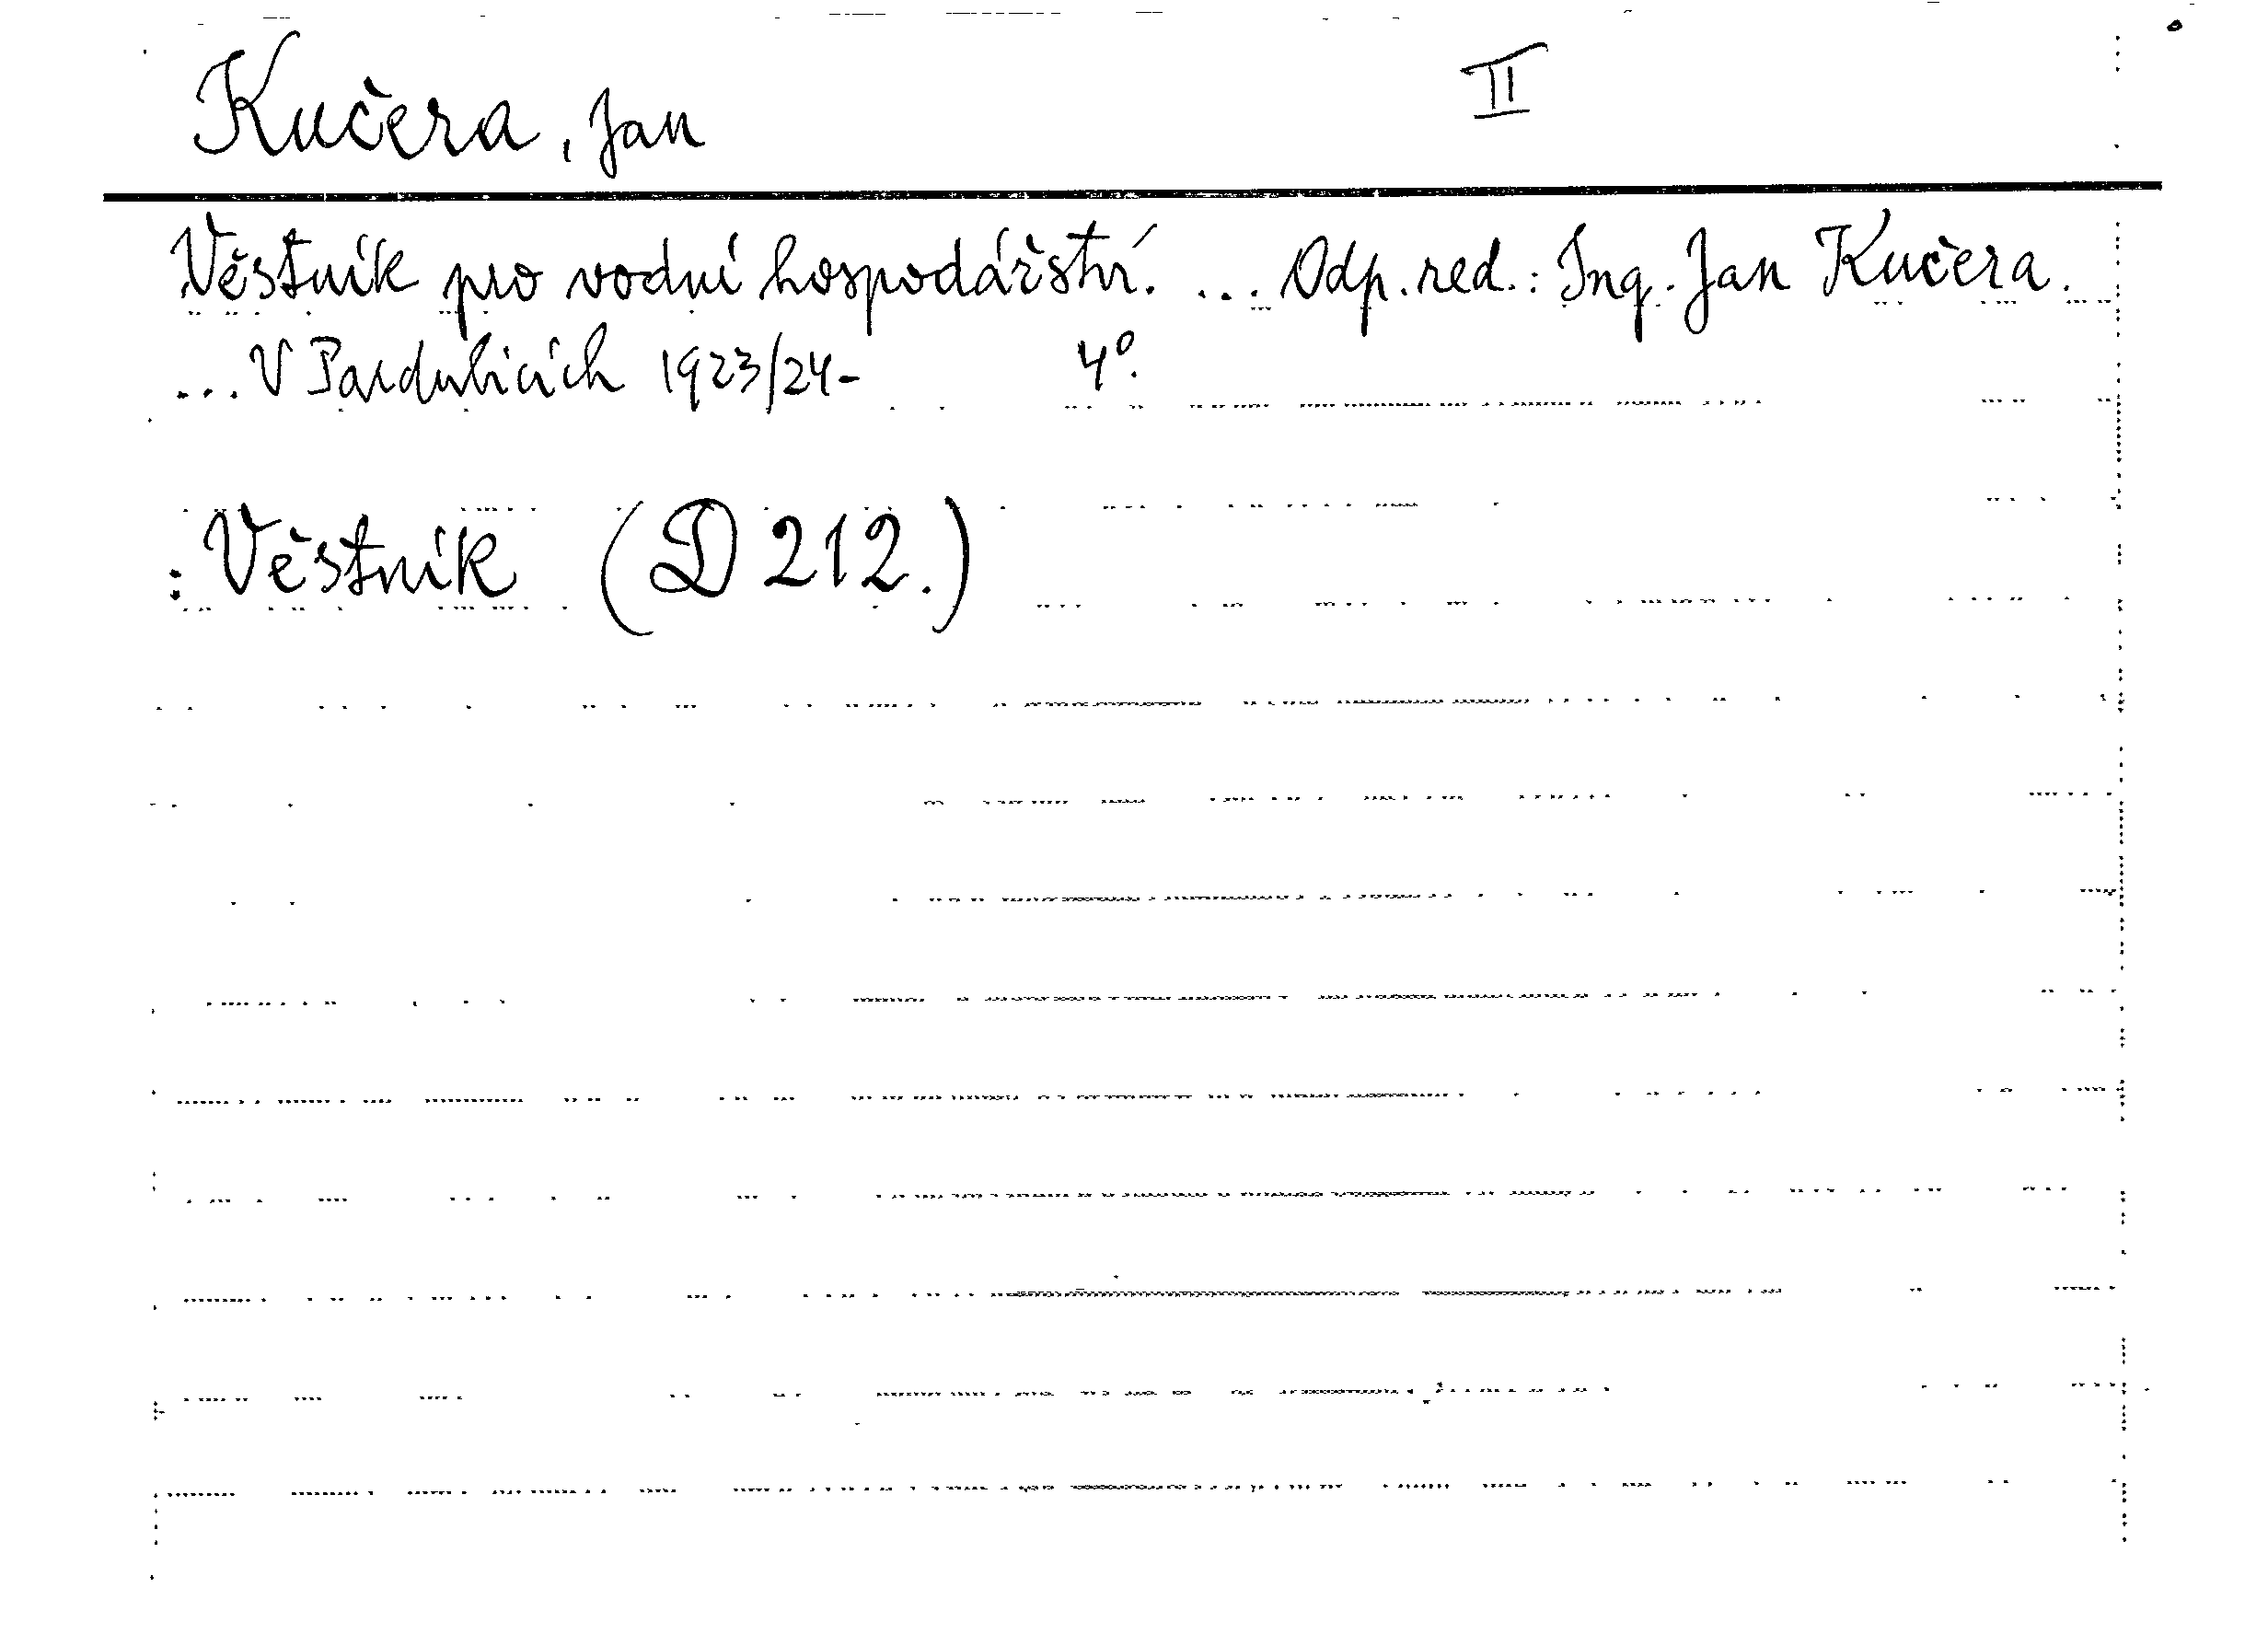 Kučera, Jan II
Věstník pro vodní hospodářství. ... Odp. red.: Ing. Jan Kučera.
... V Pardubicích 1923/24- 4°.
: Věstník (D 212.)